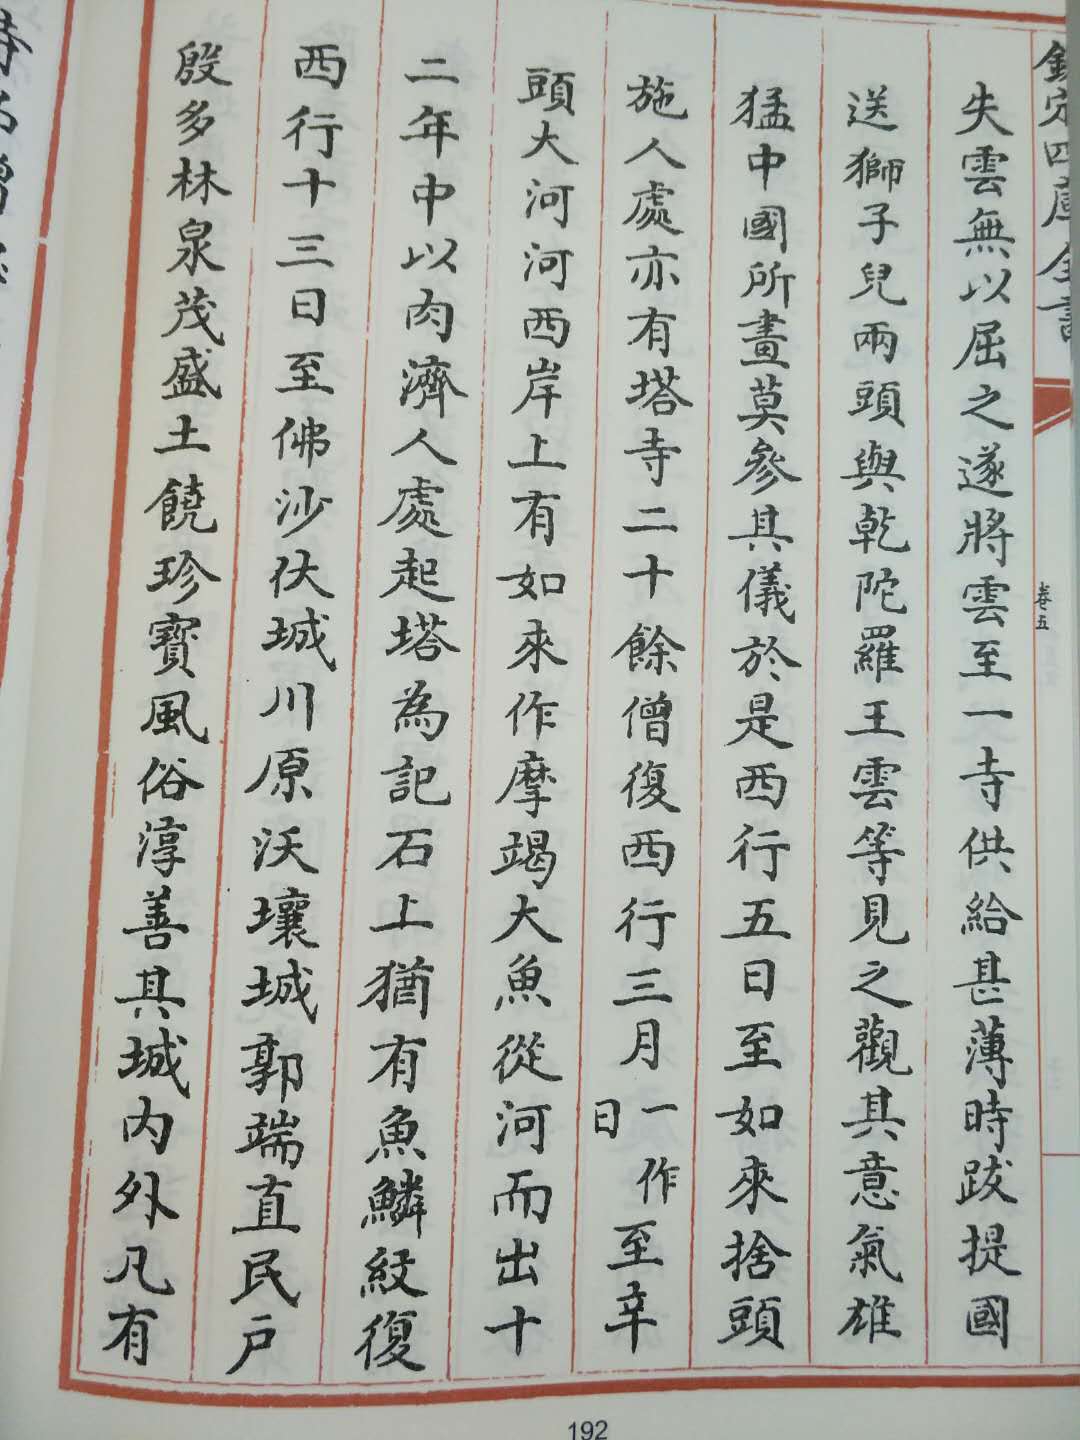 欽定四庫全書
卷五
失雲無以屈之遂將雲至一寺供給甚薄時跋提國
送獅子兒兩頭與乾陀羅王雲等見之觀其意氣雄
猛中國所畫莫參其儀於是西行五日至如來捨頭
施人處亦有塔寺二十餘僧復西行三月一作日至辛
頭大河河西岸上有如來作摩竭大魚從河而出十
二年中以肉濟人處起塔為記石上猶有魚鱗紋復
西行十三日至佛沙伏城川原沃壤城郭端直民戶
殷多林泉茂盛土饒珍寶風俗淳善其城內外凡有
192